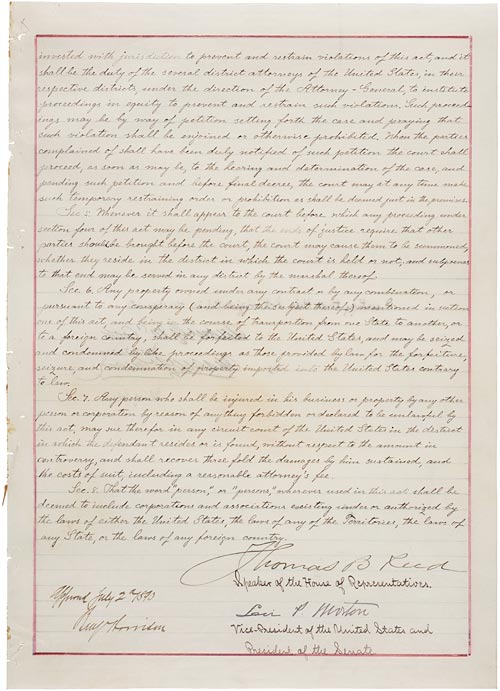 invested with jurisdiction to prevent and restrain violations of this act, and it
shall be the duty of the several district attorneys of the United States, in their
respective districts, under the direction of the Attorney-General, to institute
proceedings in equity to prevent and restrain such violations. Such proceed-
ings may be by way of petition setting forth the case and praying that
such violation shall be enjoined or otherwise prohibited. When the parties
complained of shall have been duly notified of such petition the court shall
proceed, as soon as may be, to the hearing and determination of the case, and
pending such petition and before final decree, the court may at any time make
such temporary restraining order or prohibition as shall be deemed just in the premises.
Sec. 5. Whenever it shall appear to the court before which any proceeding under
section four of this act may be pending, that the ends of justice require that other
parties should be brought before the court, the court may cause them to be summoned,
whether they reside in the district in which the court is held or not; and subpoenas
to that end may be served in any district by the marshal thereof.
Sec. 6. Any property owned under any contract or by any combination, or
pursuant to any conspiracy (and being the subject thereof) mentioned in section
one of this act, and being in the course of transportion from one State to another, or
to a foreign country, shall be forfeited to the United States, and may be seized
and condemned by like proceedings as those provided by law for the forfeiture,
seizure, and condemnation of property imported into the United States contrary
to law.
Sec. 7. Any person who shall be injured in his business or property by any other
person or corporation by reason of anything forbidden or declared to be unlawful by
this act, may sue therefor in any circuit court of the United States in the district
in which the defendant resides or is found, without respect to the amount in
controversy, and shall recover three fold the damages by him sustained, and
the costs of suit, including a reasonable attorney's fee.
Sec. 8. That the word "person," or "persons," wherever used in this act shall be
deemed to include corporations and associations existing under or authorized by
the laws of either the United States, the laws of any of the Territories, the laws of
any State, or the laws of any foreign country.
Thomas B Reed
Speaker of the House of Representatives.
Approved July 2d 1890
Benj Harrison
Levi P. Morton
Vice-President of the United States and
President of the Senate